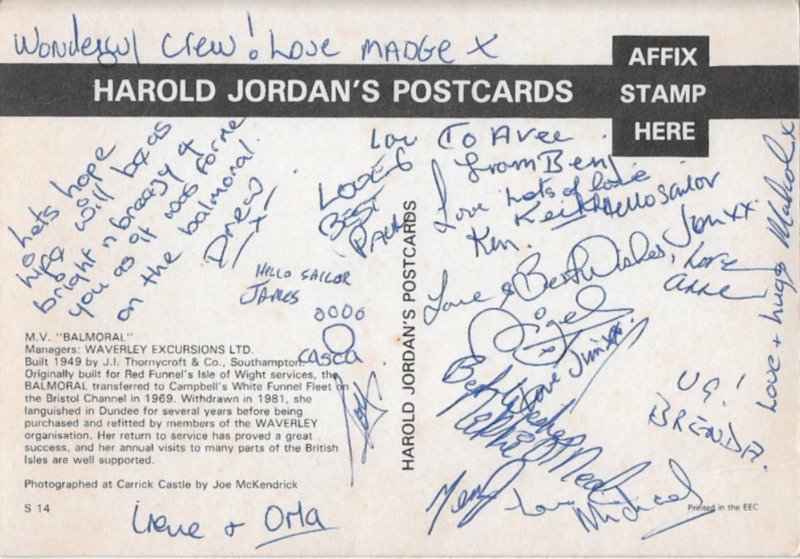 Wonderful Crew! Love MADGE X
AFFIX
STAMP
HERE
HAROLD JORDAN'S POSTCARDS
Lets hope
hipa will be as
bright n breezy 4
you as it was for me
on the balmoral.
Drew x!
HELLO SAILOR
JAMES
LOVE &
BEST
Love To Avee
from Ben
Lots of love
Keith
Hello sailor
Jon xx
Love
Ken.
Love & Best Wishes,
Nigel
Love
Anne
Love + hugs Malcolm x
Love Jim xx
Best Wishes
UG!
BRENDA
Love
Michael
oooo
casca
HAROLD JORDAN'S POSTCARDS
M.V. "BALMORAL"
Managers: WAVERLEY EXCURSIONS LTD.
Built 1949 by J.I. Thornycroft & Co., Southampton.
Originally built for Red Funnel's Isle of Wight services, the
BALMORAL transferred to Campbell's White Funnel Fleet on
the Bristol Channel in 1969. Withdrawn in 1981, she
languished in Dundee for several years before being
purchased and refitted by members of the WAVERLEY
organisation. Her return to service has proved a great
success, and her annual visits to many parts of the British
Isles are well supported.
Photographed at Carrick Castle by Joe McKendrick
S 14
Irene + Orla
Printed in the EEC